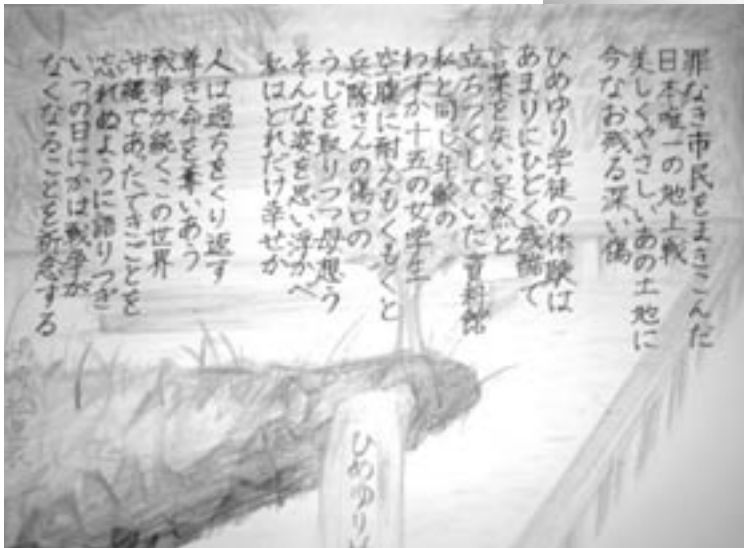 罪なき市民をまきこんだ
日本唯一の地上戦
美しくやさしいあの土地に
今なお残る深い傷
ひめゆり学徒の体験は
あまりにひどく残酷で
言葉を失い呆然と
立ちつくしていた資料館
私と同じ年齢の
わずか十五の女学生
空腹に耐えもくもくと
兵隊さんの傷口の
うじを取りつつ母想う
そんな姿を思い浮かべ
私はどれだけ幸せか
人は過ちをくり返す
尊き命を奪いあう
戦争が続くこの世界
沖縄であったできごとを
忘れぬように語りつぎ
いつの日にかは戦争が
なくなることを祈念する
ひめゆり